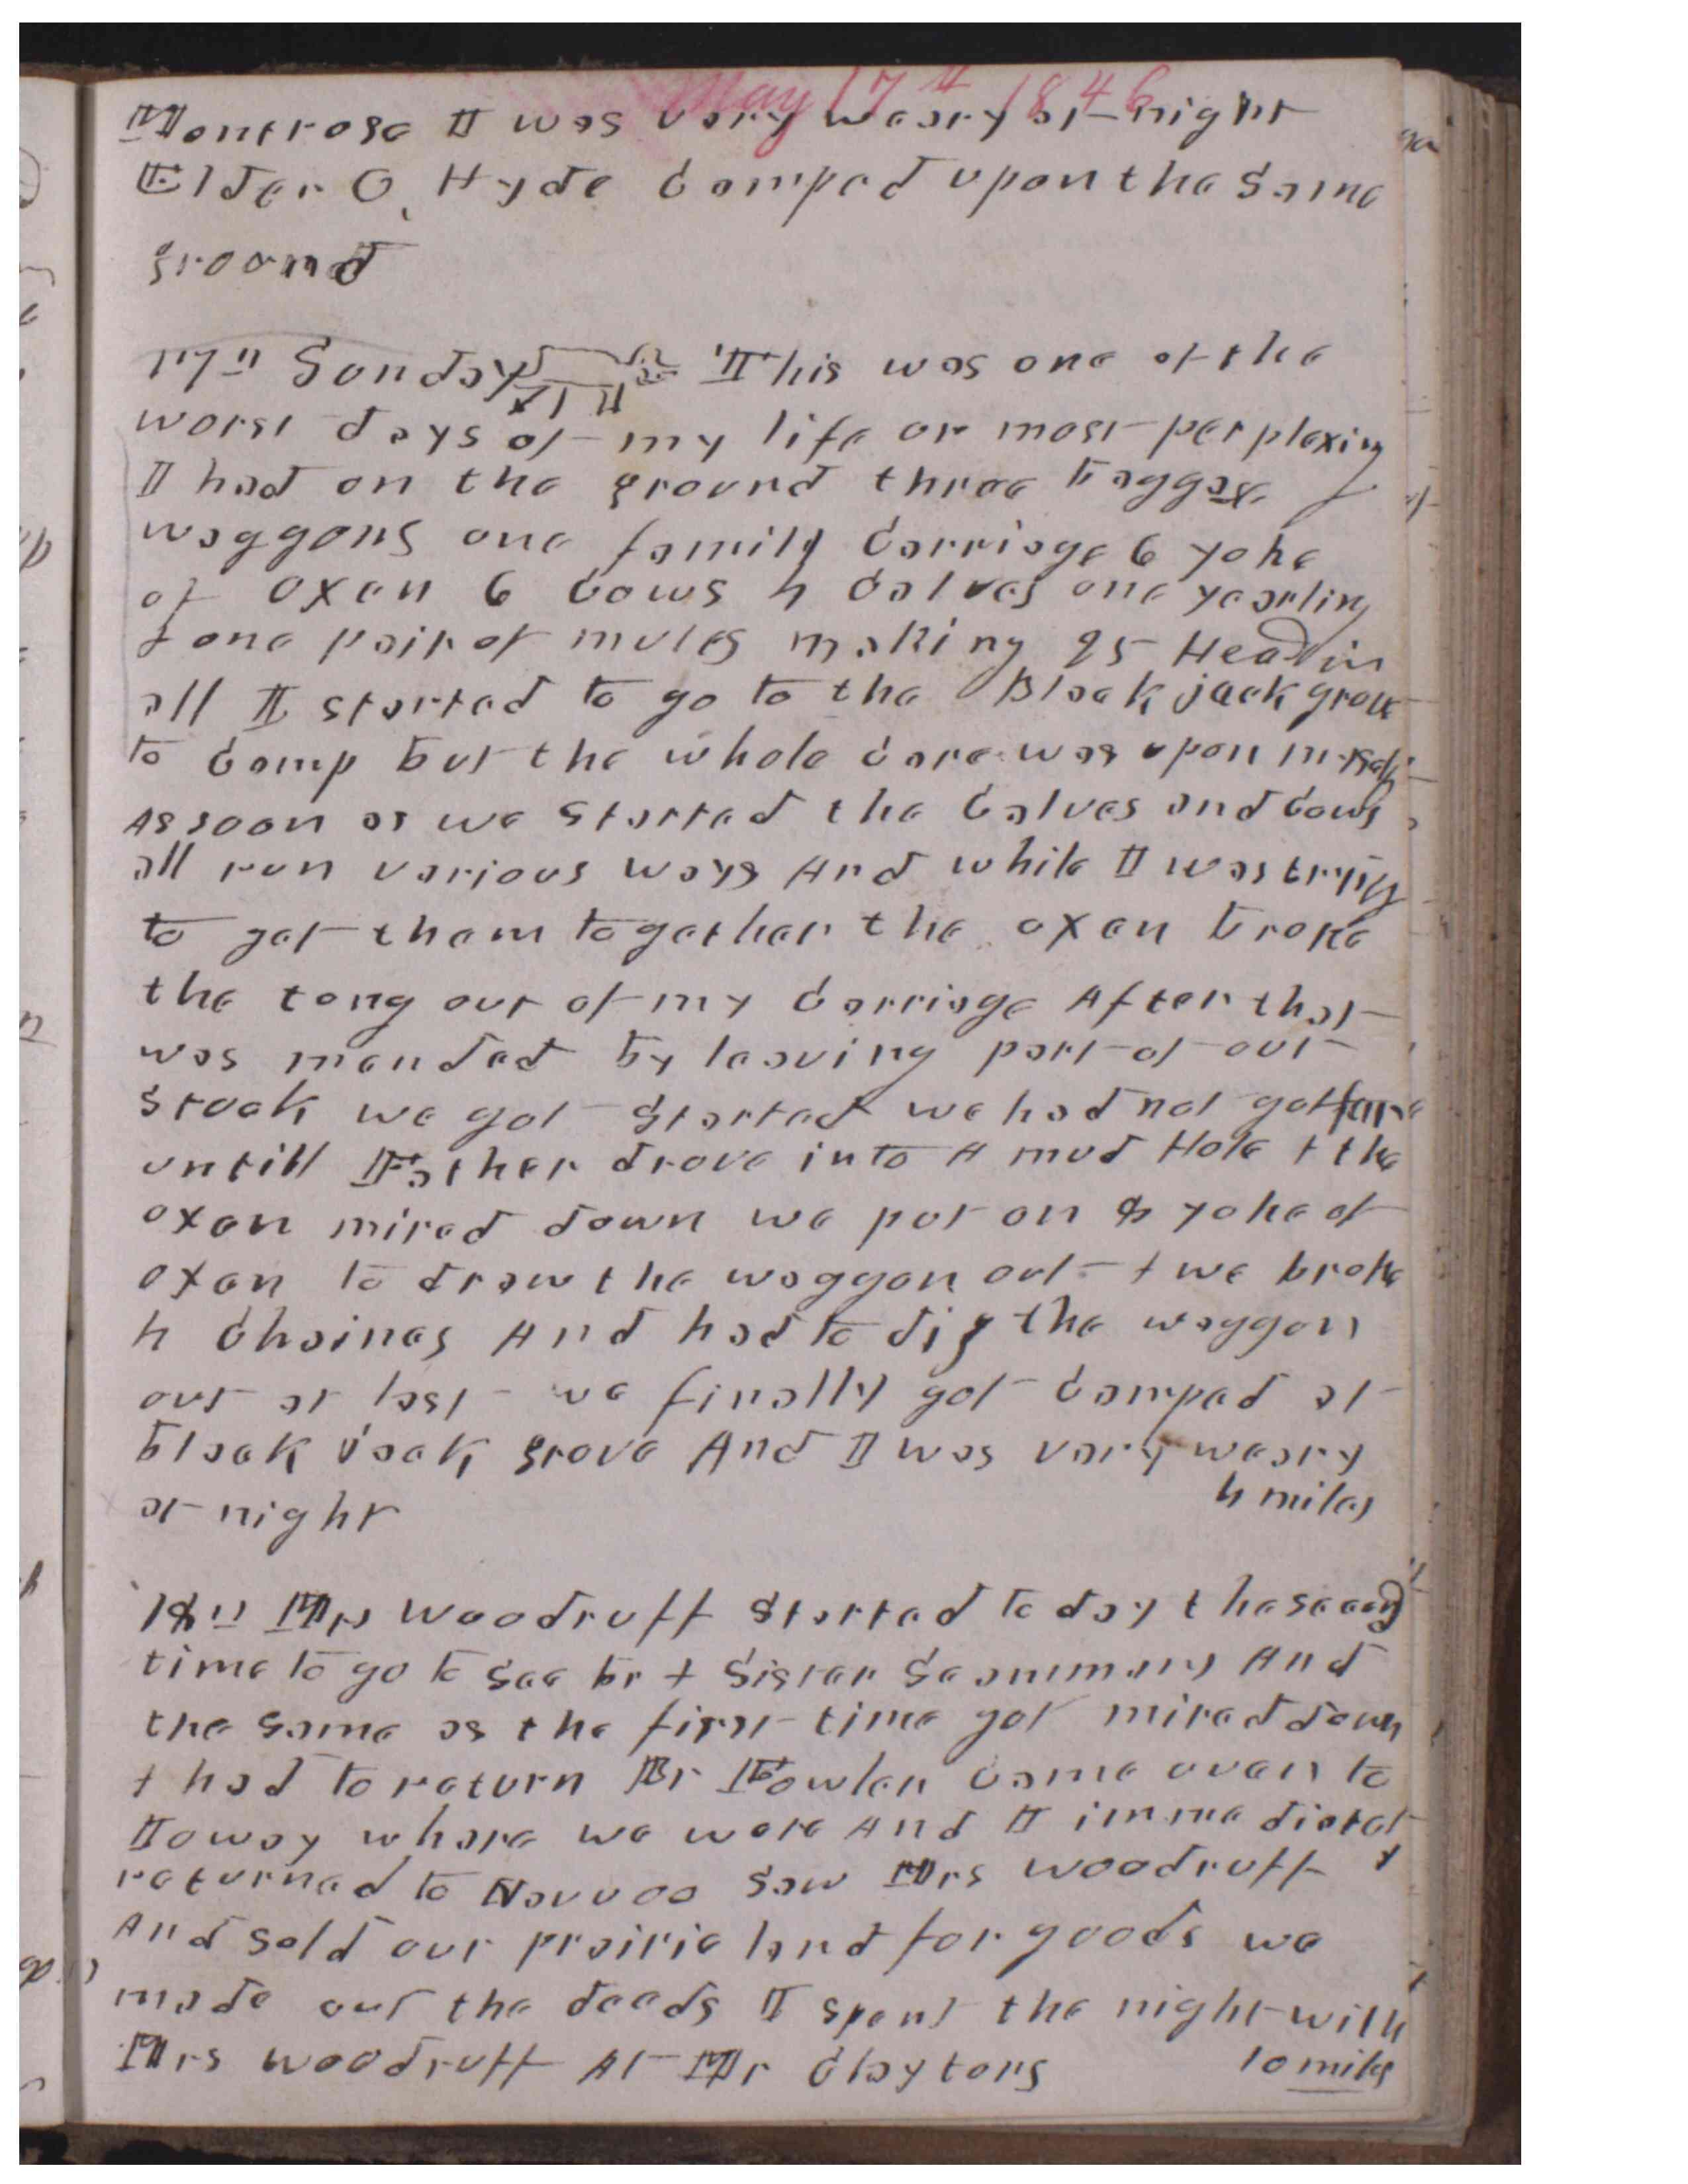 May 17th 1846
Montrose I was very weary at night
Elder O. Hyde Camped upon the Same
ground
17th Sunday This was one of the
worst days of my life or most perplexing
I had on the ground three baggage
waggons one family Carriage 6 yoke
of oxen 6 Cows 4 Calves one yearling
& one pair of mules making 25 Head in
all I started to go to the Black jack grove
to Camp but the whole Care was upon myself
As soon as we started the Calves and Cows
all run various ways And while I was trying
to get them together the oxen broke
the tong out of my Carriage After that
was mended by leaving part of our
stock we got started we had not got far
untill Father drove into A mud Hole & the
oxen mired down we put on 8 yoke of
oxen to draw the waggon out & we broke
4 Chaines And had to dig the waggon
out at last we finally got Camped at
black Jack grove And I was vary weary
at night 4 miles
18th Mrs Woodruff started to day the second
time to go to see br & Sister Seammans And
the same as the first time got mired down
& had to return Br Fowler Came over to
Ioway where we were And I immediately
returned to Nauvoo saw Mrs Woodruff
And sold our prairie land for goods we
made out the deeds I spent the night with
Mrs Woodruff At Mr Claytons 10 miles